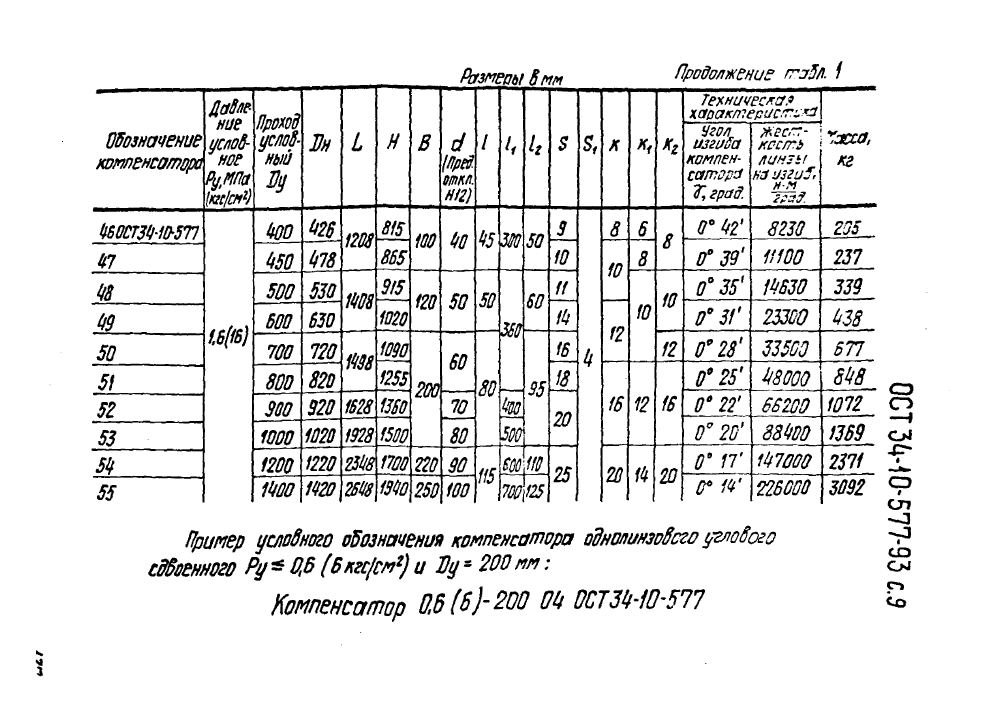 Размеры в мм
Продолжение табл. 1
Обозначение компенсатора | Давление условное Ру, МПа (кгс/см²) | Проход условный Dу | Dн | L | H | B | d (Пред. откл. H12) | l | l₁ | l₂ | S | S₁ | к | к₁ | к₂ | Техническая характеристика | Масса, кг
Угол изгиба компенсатора γ, град. | Жесткость линзы на изгиб, Н·м/град.
46 ОСТ 34-10-577 | 1,6(16) | 400 | 426 | 1208 | 815 | 100 | 40 | 45 | 300 | 50 | 9 | 4 | 8 | 6 | 8 | 0° 42' | 8230 | 205
47 | 450 | 478 | 865 | 10 | 10 | 8 | 0° 39' | 11100 | 237
48 | 500 | 530 | 1408 | 915 | 120 | 50 | 50 | 360 | 60 | 11 | 10 | 10 | 0° 35' | 14630 | 339
49 | 600 | 630 | 1020 | 14 | 12 | 0° 31' | 23300 | 438
50 | 700 | 720 | 1498 | 1090 | 200 | 60 | 80 | 95 | 16 | 12 | 0° 28' | 33500 | 677
51 | 800 | 820 | 1255 | 18 | 16 | 12 | 16 | 0° 25' | 48000 | 848
52 | 900 | 920 | 1628 | 1360 | 70 | 400 | 20 | 0° 22' | 66200 | 1072
53 | 1000 | 1020 | 1928 | 1500 | 80 | 500 | 0° 20' | 88400 | 1369
54 | 1200 | 1220 | 2348 | 1700 | 220 | 90 | 115 | 600 | 110 | 25 | 20 | 14 | 20 | 0° 17' | 147000 | 2371
55 | 1400 | 1420 | 2648 | 1940 | 250 | 100 | 700 | 125 | 0° 14' | 226000 | 3092
Пример условного обозначения компенсатора однолинзового углового
сдвоенного Ру ≤ 0,6 (6 кгс/см²) и Dу = 200 мм :
Компенсатор 0,6 (6)-200 04 ОСТ34-10-577
ОСТ 34-10-577-93 с.9